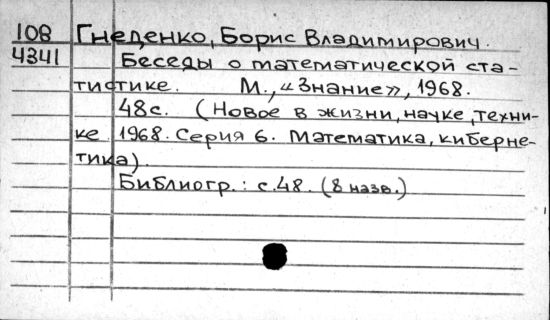 108 Гнеденко, Борис Владимирович.
4341 Беседы о математической ста-
тистике. М., «Знание», 1968.
48с. (Новое в жизни, науке, техни-
ке 1968. Серия 6. Математика, киберне-
тика).
Библиогр.: с.48. (8 назв.)